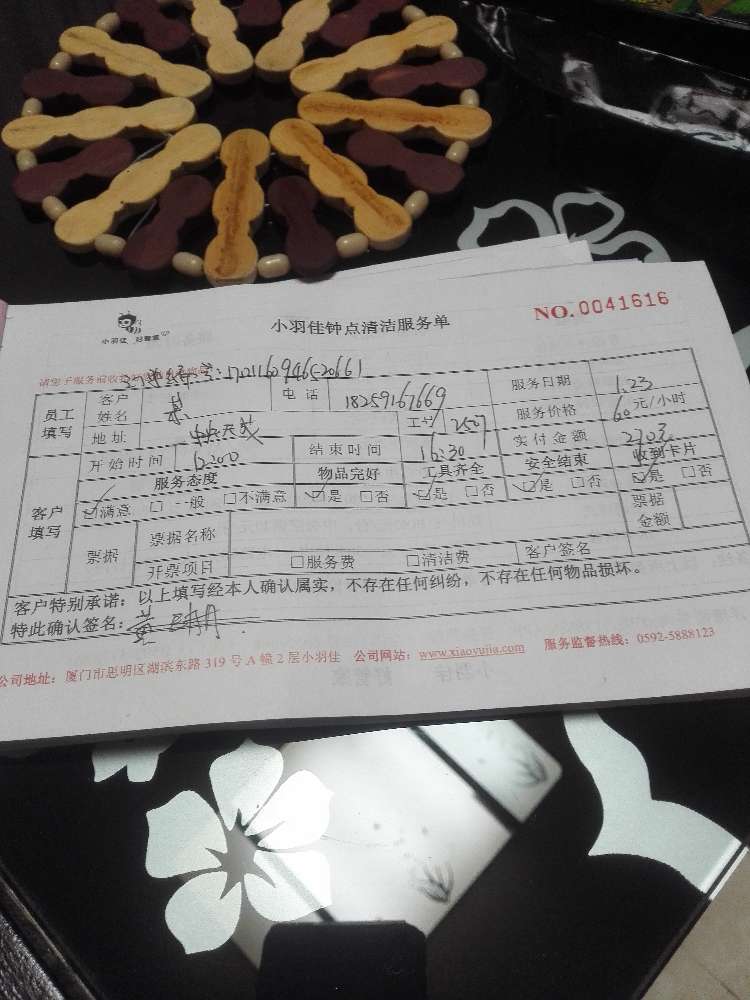 小羽佳 好管家
小羽佳钟点清洁服务单
NO.0041616
员工填写 客户姓名 黄 电话 18259167669 服务日期 1.23
地址 工号 2507 服务价格 60 元/小时
开始时间 12:00 结束时间 16:30 实付金额 270
服务态度 物品完好 工具齐全 安全结束 收到卡片
客户填写 ☑满意 □一般 □不满意 ☑是 □否 ☑是 □否 ☑是 □否 ☑是 □否
票据 票据名称 票据金额
开票项目 □服务费 □清洁费 客户签名
客户特别承诺：以上填写经本人确认属实，不存在任何纠纷，不存在任何物品损坏。
特此确认签名：黄
公司地址：厦门市思明区湖滨东路 319 号 A 幢 2 层小羽佳 公司网站：www.xiaoyujia.com 服务监督热线：0592-5888123